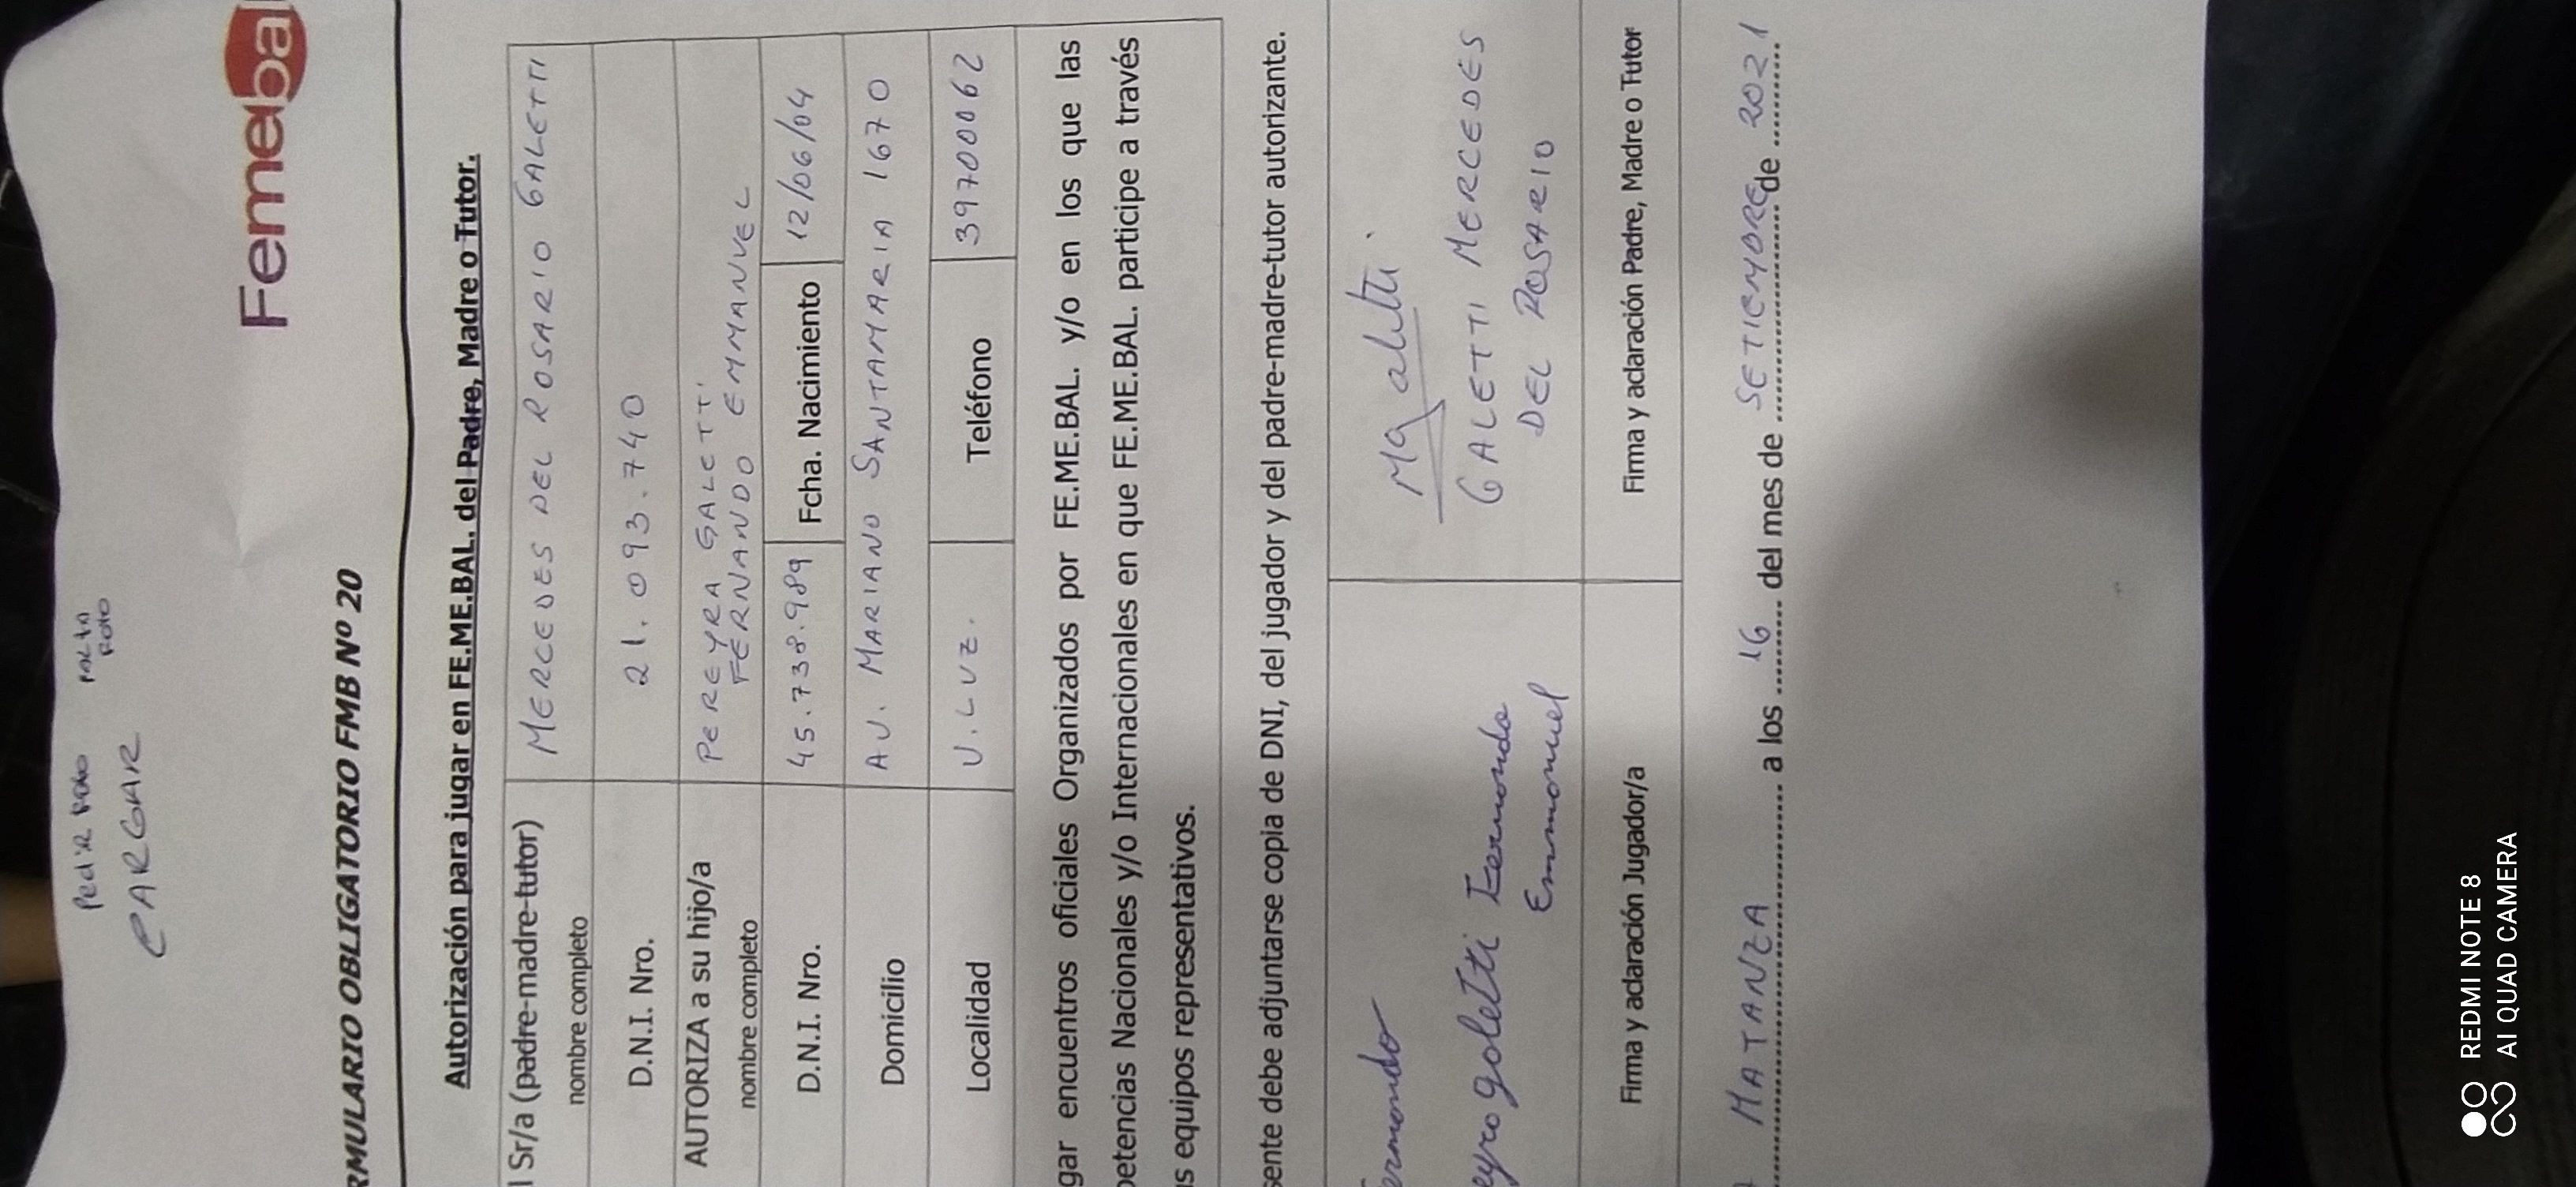 Pedir FOTO FALTA FOTO
CARGAR
Femebal
RMULARIO OBLIGATORIO FMB Nº 20
Autorización para jugar en FE.ME.BAL. del Padre, Madre o Tutor.
l Sr/a (padre-madre-tutor) nombre completo MERCEDES DEL ROSARIO GALETTI
D.N.I. Nro. 21.093.740
AUTORIZA a su hijo/a nombre completo PEREYRA GALETTI FERNANDO EMMANUEL
D.N.I. Nro. 45.738.989 Fcha. Nacimiento 12/06/04
Domicilio AV. MARIANO SANTAMARIA 1670
Localidad V. LUZ. Teléfono 39700062
gar encuentros oficiales Organizados por FE.ME.BAL. y/o en los que las
petencias Nacionales y/o Internacionales en que FE.ME.BAL. participe a través
us equipos representativos.
sente debe adjuntarse copia de DNI, del jugador y del padre-madre-tutor autorizante.
ernando
eyra galetti Fernando
Emmanuel
Firma y aclaración Jugador/a
Mgaletti.
GALETTI MERCEDES
DEL ROSARIO
Firma y aclaración Padre, Madre o Tutor
MATANZA a los 16 del mes de SETIEMBRE de 2021
REDMI NOTE 8
AI QUAD CAMERA